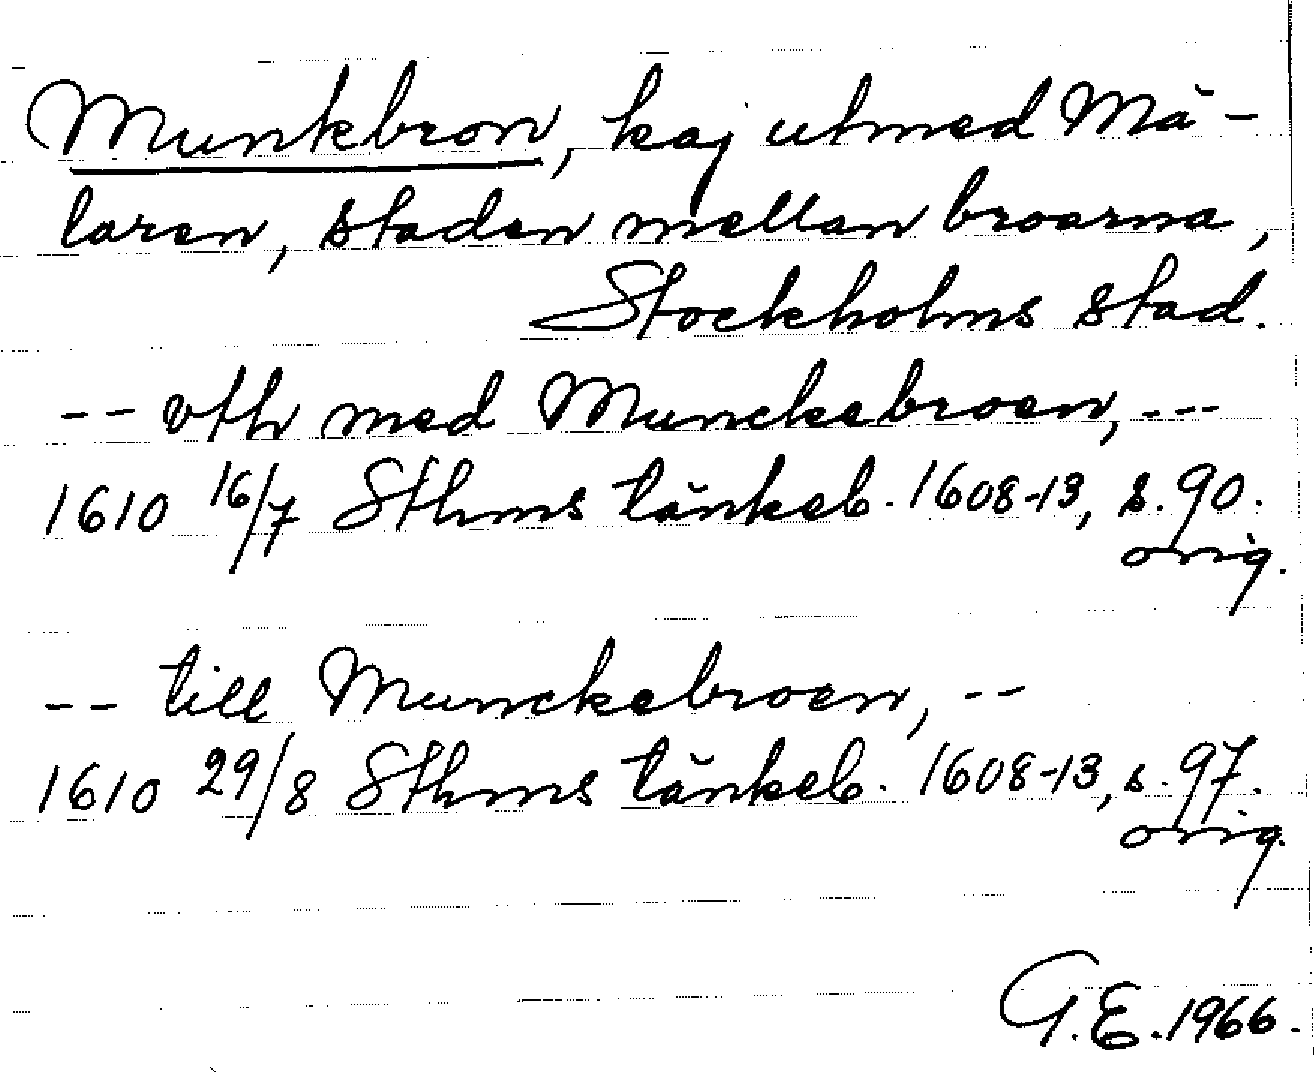 Munkbron, kaj utmed Mä-
laren, staden mellan broarna,
Stockholms stad.
-- vth med Munckebroen, ---
1610 16/7 Sthms tänkeb. 1608-13, s. 90.
orig.
-- till Munckebroen, --
1610 29/8 Sthms tänkeb. 1608-13, s. 97.
orig.
G.E. 1966.